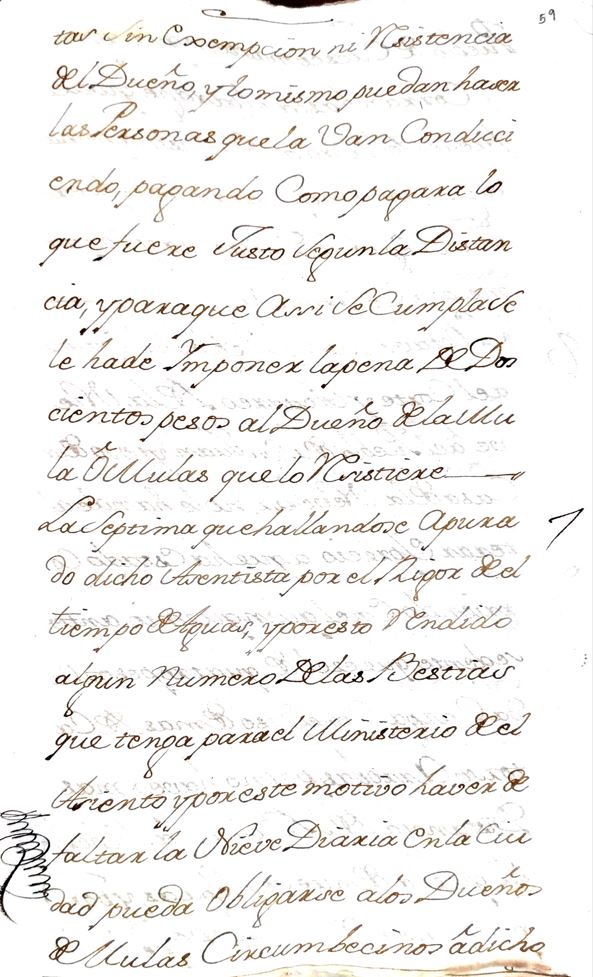 59
tas sin Exempcion ni Resistencia
del Dueño, y lo mismo puedan haser
las Personas que la Van Conduci
endo, pagando Como pagara lo
que fuere Justo Segun la Distan
cia, y para que Assi se Cumpla se
le ha de Ymponer la pena De Dos
cientos pesos al Dueño de la Mu
la ò Mulas que lo Resistiere
La Septima que hallandose Apura
do dicho Asentista por el Rigor de el
tiempo de Aguas, y por esto Rendido
algun Numero De las Bestias
que tenga para el Ministerio de el
Asiento y por este motivo haver de
faltar la Nieve Diaria En la Ciu
dad pueda Obligarse a los Dueños
de Mulas Circumbecinos à dicho
7